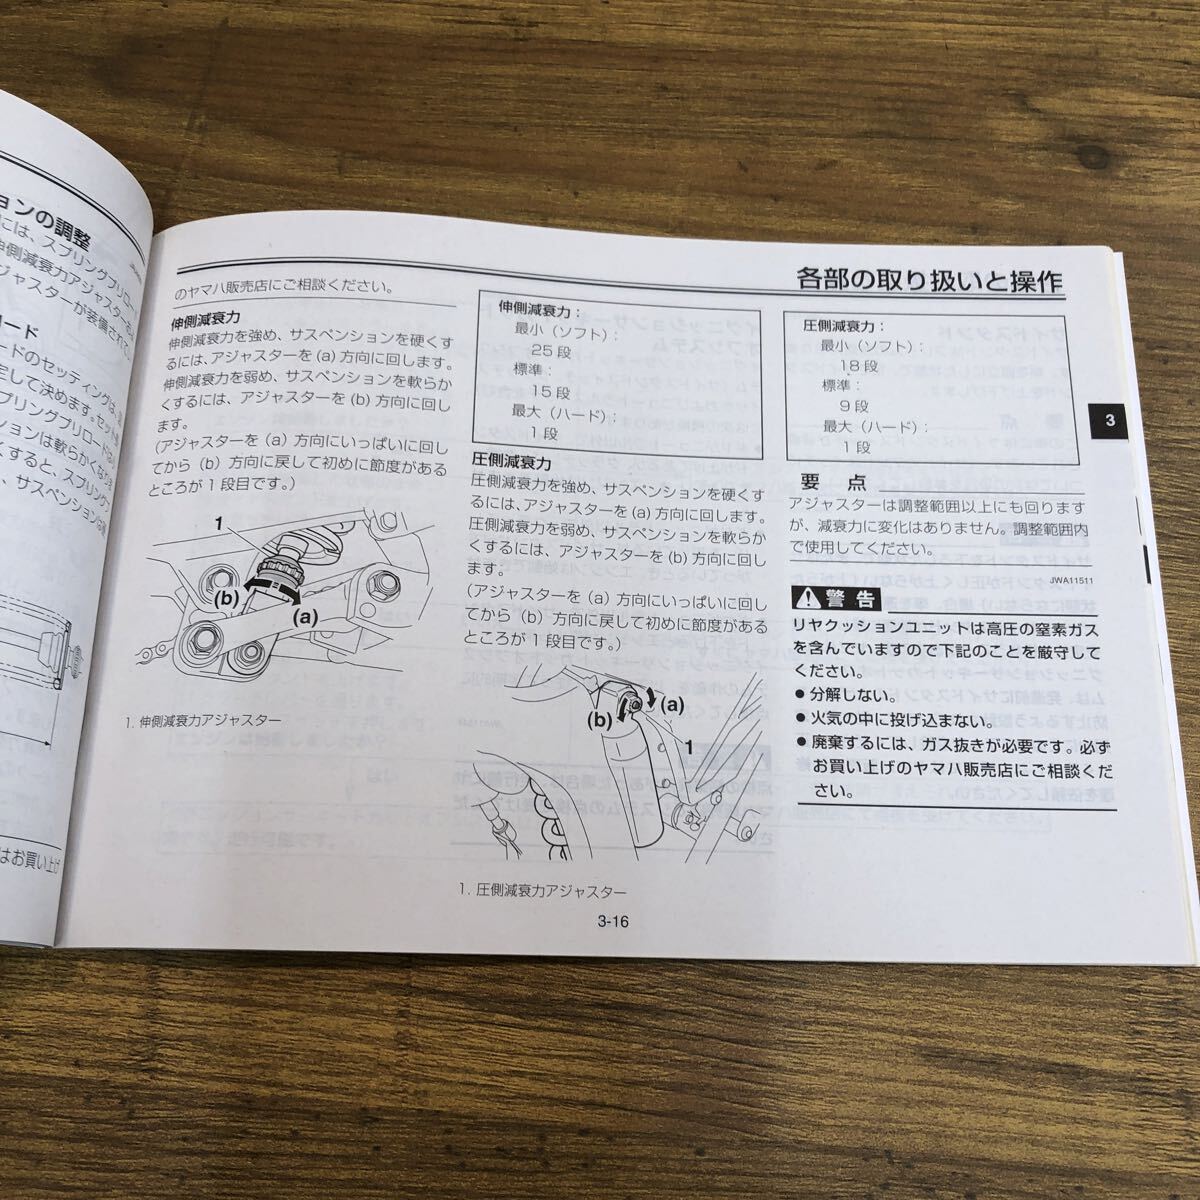 ョンの調整
には、スプリングプリロー
伸側減衰力アジャスター
ジャスターが装備されて
ロード
ードのセッティングは、
定して決めます。セット
プリングプリロードの
ションは軟らかくなり
くすると、スプリング
、サスペンションも硬
はお買い上げ
各部の取り扱いと操作
のヤマハ販売店にご相談ください。
伸側減衰力
伸側減衰力を強め、サスペンションを硬くす
るには、アジャスターを (a) 方向に回します。
伸側減衰力を弱め、サスペンションを軟らか
くするには、アジャスターを (b) 方向に回し
ます。
(アジャスターを (a) 方向にいっぱいに回し
てから (b) 方向に戻して初めに節度がある
ところが 1 段目です。)
1
(b)
(a)
1. 伸側減衰力アジャスター
伸側減衰力：
最小（ソフト）：
25 段
標準：
15 段
最大（ハード）：
1 段
圧側減衰力
圧側減衰力を強め、サスペンションを硬くす
るには、アジャスターを (a) 方向に回します。
圧側減衰力を弱め、サスペンションを軟らか
くするには、アジャスターを (b) 方向に回し
ます。
(アジャスターを (a) 方向にいっぱいに回し
てから (b) 方向に戻して初めに節度がある
ところが 1 段目です。)
(a)
(b)
1
1. 圧側減衰力アジャスター
圧側減衰力：
最小（ソフト）：
18 段
標準：
9 段
最大（ハード）：
1 段
要 点
アジャスターは調整範囲以上にも回ります
が、減衰力に変化はありません。調整範囲内
で使用してください。
JWA11511
警 告
リヤクッションユニットは高圧の窒素ガス
を含んでいますので下記のことを厳守して
ください。
● 分解しない。
● 火気の中に投げ込まない。
● 廃棄するには、ガス抜きが必要です。必ず
お買い上げのヤマハ販売店にご相談くだ
さい。
3
3-16